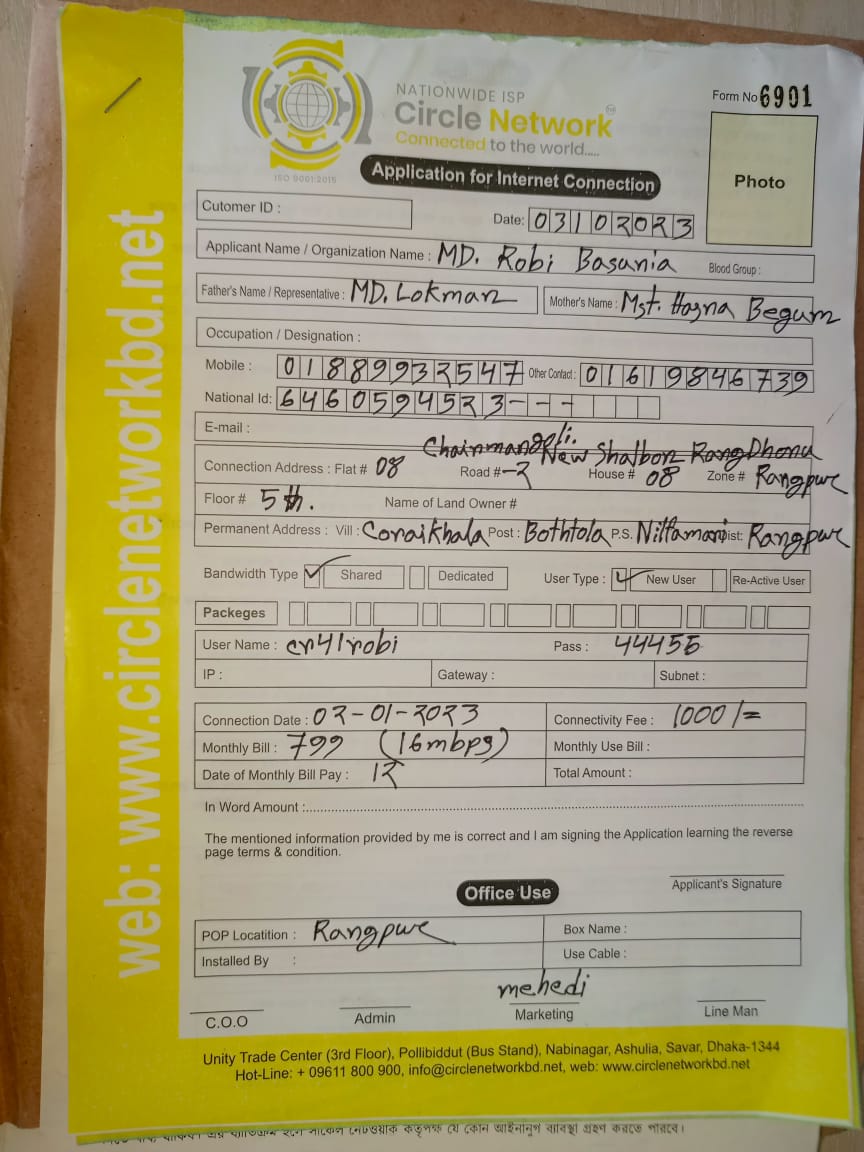 NATIONWIDE ISP
Circle Network
Connected to the world.....
ISO 9001:2015
Form No 6901
Application for Internet Connection
Photo
Cutomer ID :
Date: 03102023
Applicant Name / Organization Name : MD. Robi Basunia Blood Group :
Father's Name / Representative : MD. Lokman Mother's Name : Mst. Hasna Begum
Occupation / Designation :
Mobile : 01889932547 Other Contact : 01619846739
National Id: 6460594523---
E-mail :
New Shalbon RangDhonu
Connection Address : Flat # 08 Road #-2 House # 08 Zone # Rangpur
Floor # 5th. Name of Land Owner #
Permanent Address : Vill : Coraikhala Post : Bothtola P.S. Nilfamari Dist: Rangpur
Bandwidth Type ✓ Shared Dedicated User Type : ✓ New User Re-Active User
Packeges
User Name : cn41robi Pass : 44455
IP : Gateway : Subnet :
Connection Date : 02-01-2023 Connectivity Fee : 1000/=
Monthly Bill : 799 (16mbps) Monthly Use Bill :
Date of Monthly Bill Pay : 12 Total Amount :
In Word Amount :
The mentioned information provided by me is correct and I am signing the Application learning the reverse
page terms & condition.
Applicant's Signature
Office Use
POP Locatition : Rangpur Box Name :
Installed By : Use Cable :
mehedi
C.O.O Admin Marketing Line Man
Unity Trade Center (3rd Floor), Pollibiddut (Bus Stand), Nabinagar, Ashulia, Savar, Dhaka-1344
Hot-Line: + 09611 800 900, info@circlenetworkbd.net, web: www.circlenetworkbd.net
web: www.circlenetworkbd.net
কর্তৃপক্ষ যে কোন আইনানুগ ব্যাবস্থা গ্রহণ করতে পারবে।